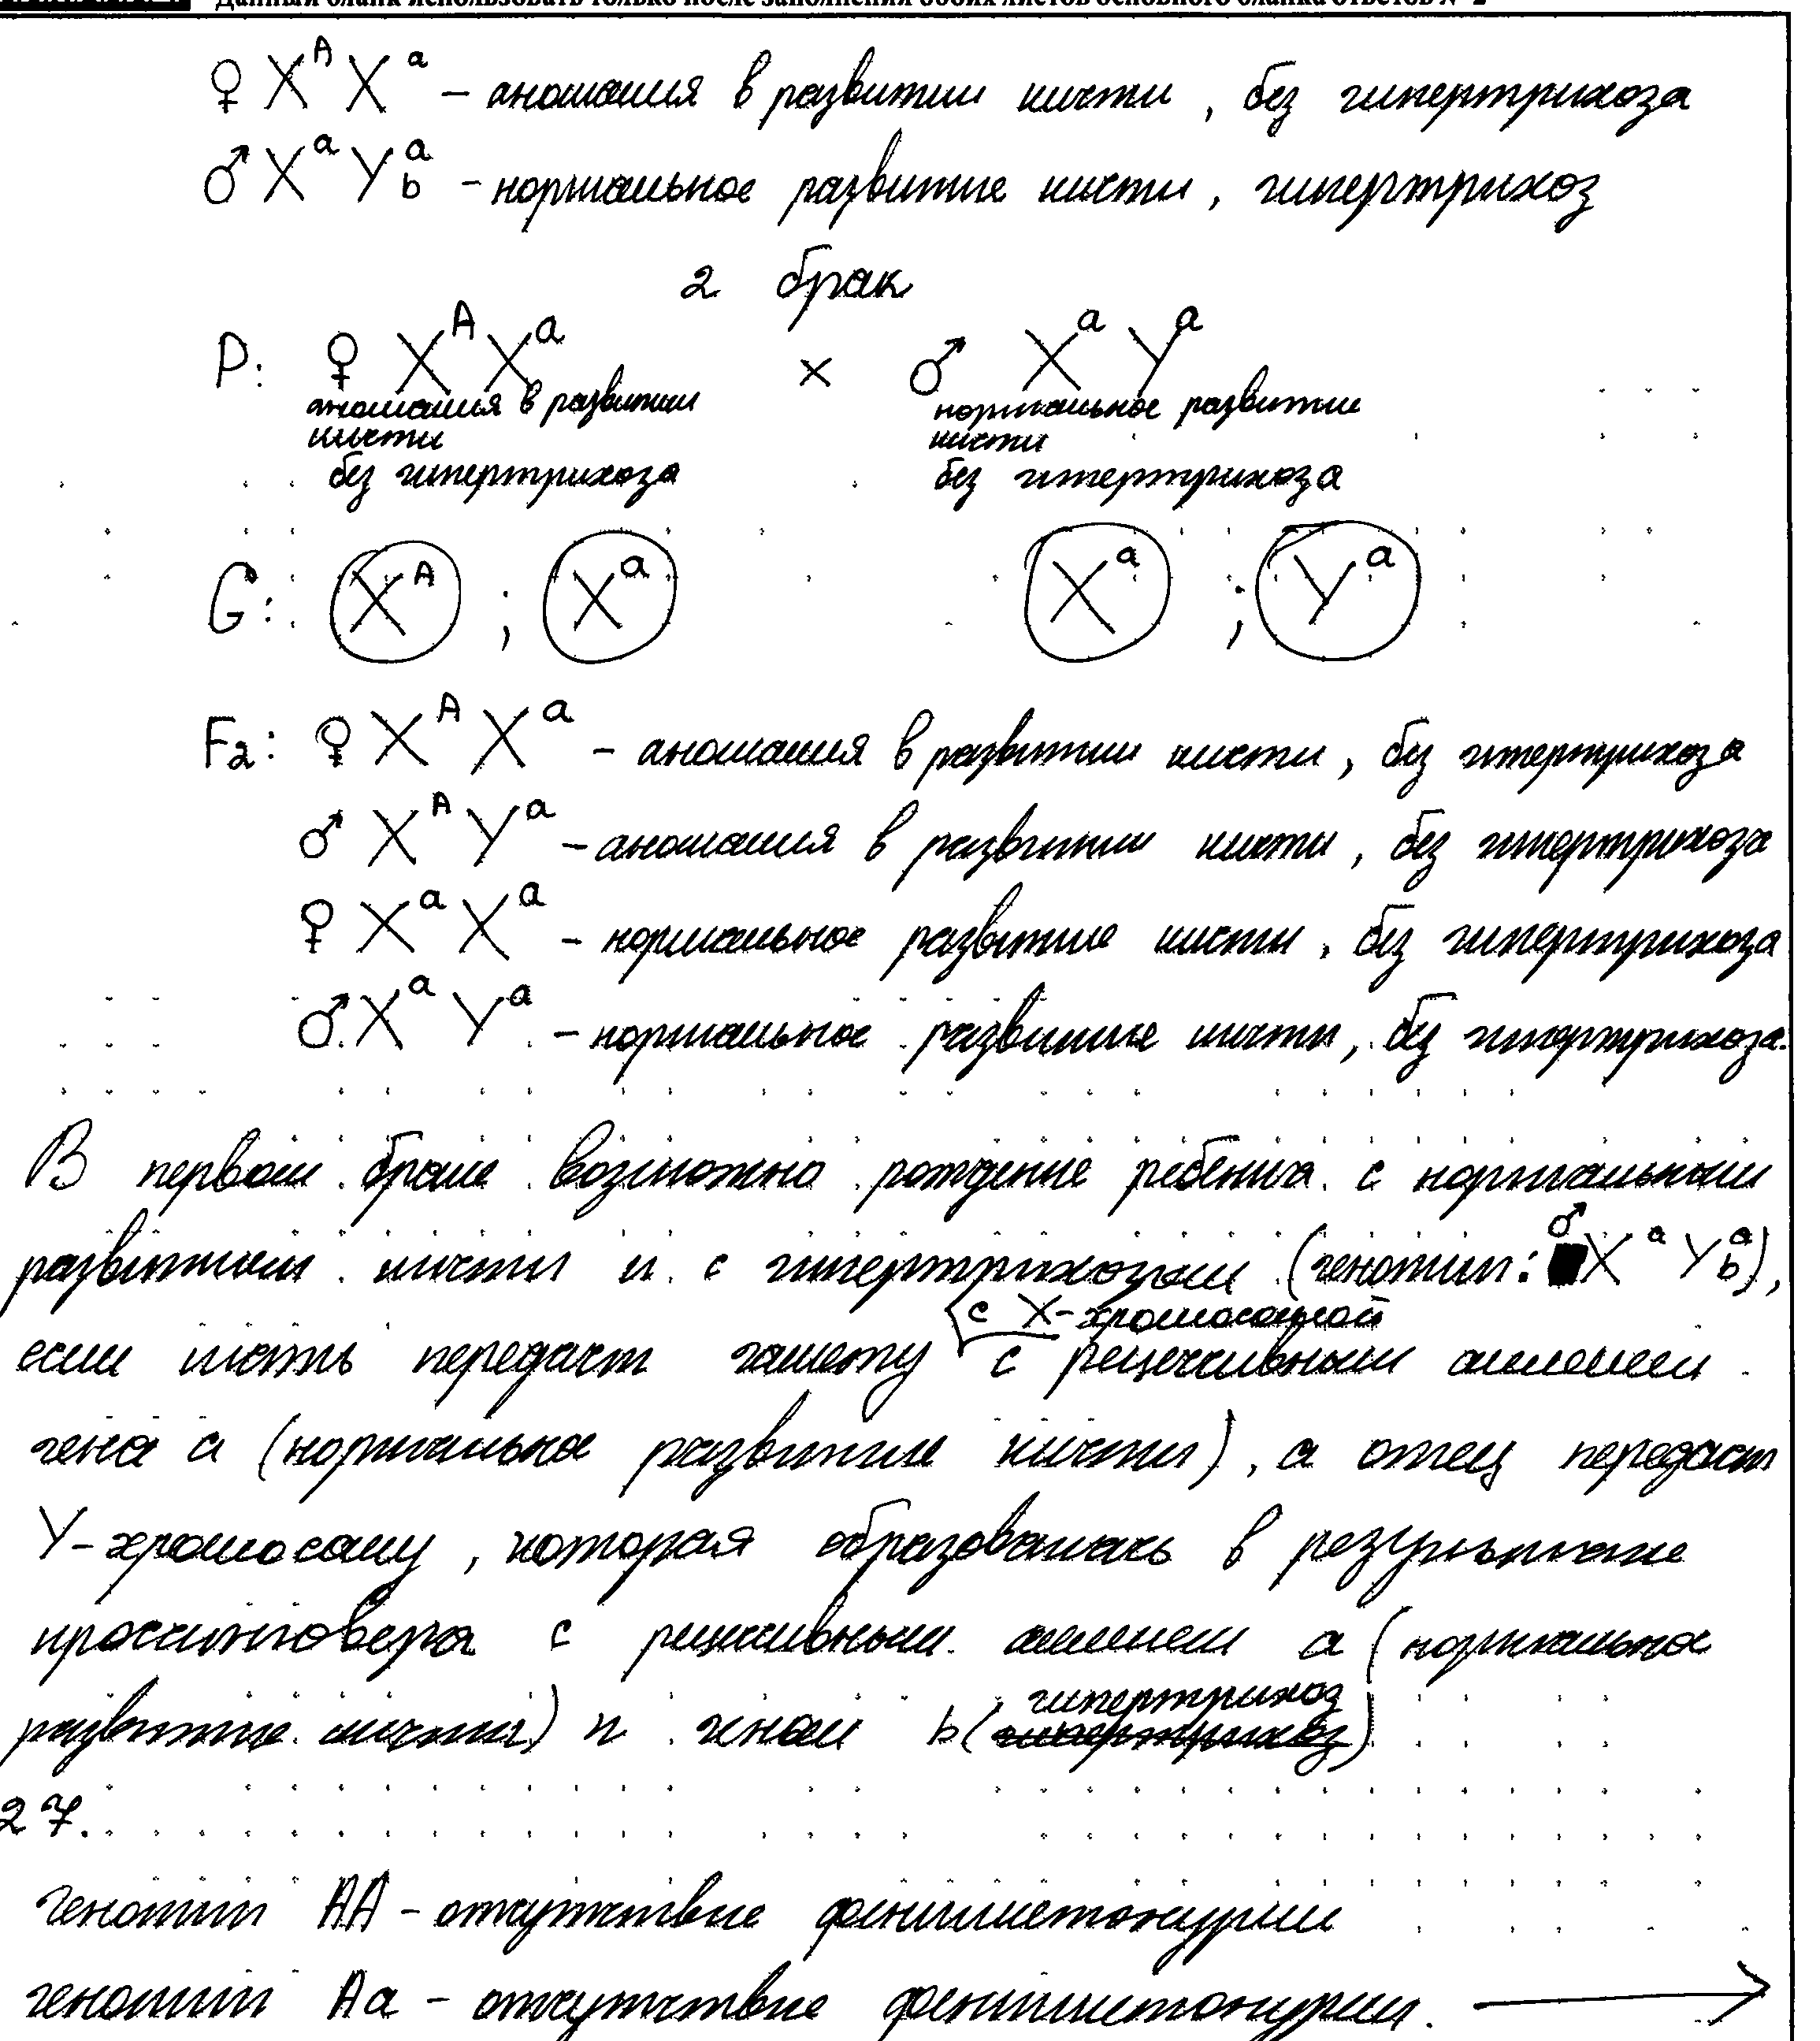 Данный бланк использовать только после заполнения обоих листов основного бланка ответов № 2
♀ X^A X^a – аномалия в развитии кисти, без гипертрихоза
♂ X^a Y^a_b – нормальное развитие кисти, гипертрихоз
2 брак
P: ♀ X^A X^a × ♂ X^a Y^a
аномалия в развитии нормальное развитие
кисти кисти
без гипертрихоза без гипертрихоза
G: X^A ; X^a X^a ; Y^a
F2: ♀ X^A X^a – аномалия в развитии кисти, без гипертрихоза
♂ X^A Y^a – аномалия в развитии кисти, без гипертрихоза
♀ X^a X^a – нормальное развитие кисти, без гипертрихоза
♂ X^a Y^a – нормальное развитие кисти, без гипертрихоза.
В первом браке возможно рождение ребенка с нормальным
развитием кисти и с гипертрихозом (генотип: ♂ X^a Y^a_b),
с X-хромосомой
если мать передаст гамету с рецессивным аллелем
гена a (нормальное развитие кисти), а отец передаст
Y-хромосому, которая образовалась в результате
кроссинговера с рецессивным аллелем a (нормальное
гипертрихоз
развитие кисти) и геном b (гипертрихоз)
27.
генотип AA – отсутствие фенилкетонурии
генотип Aa – отсутствие фенилкетонурии. →